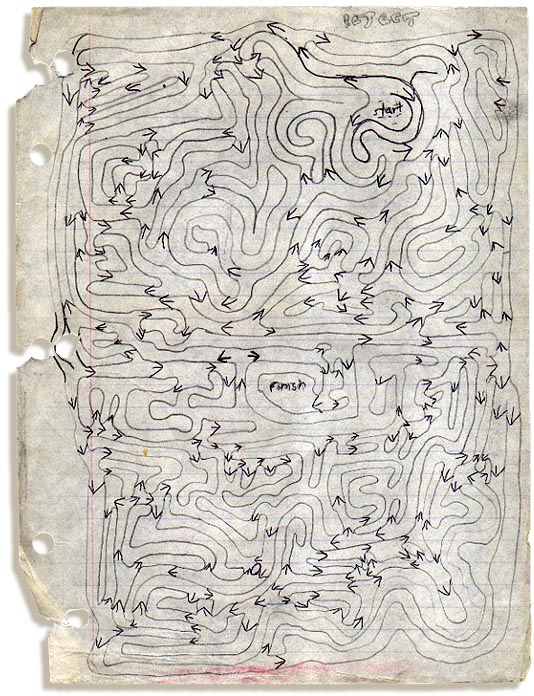 start
Finish